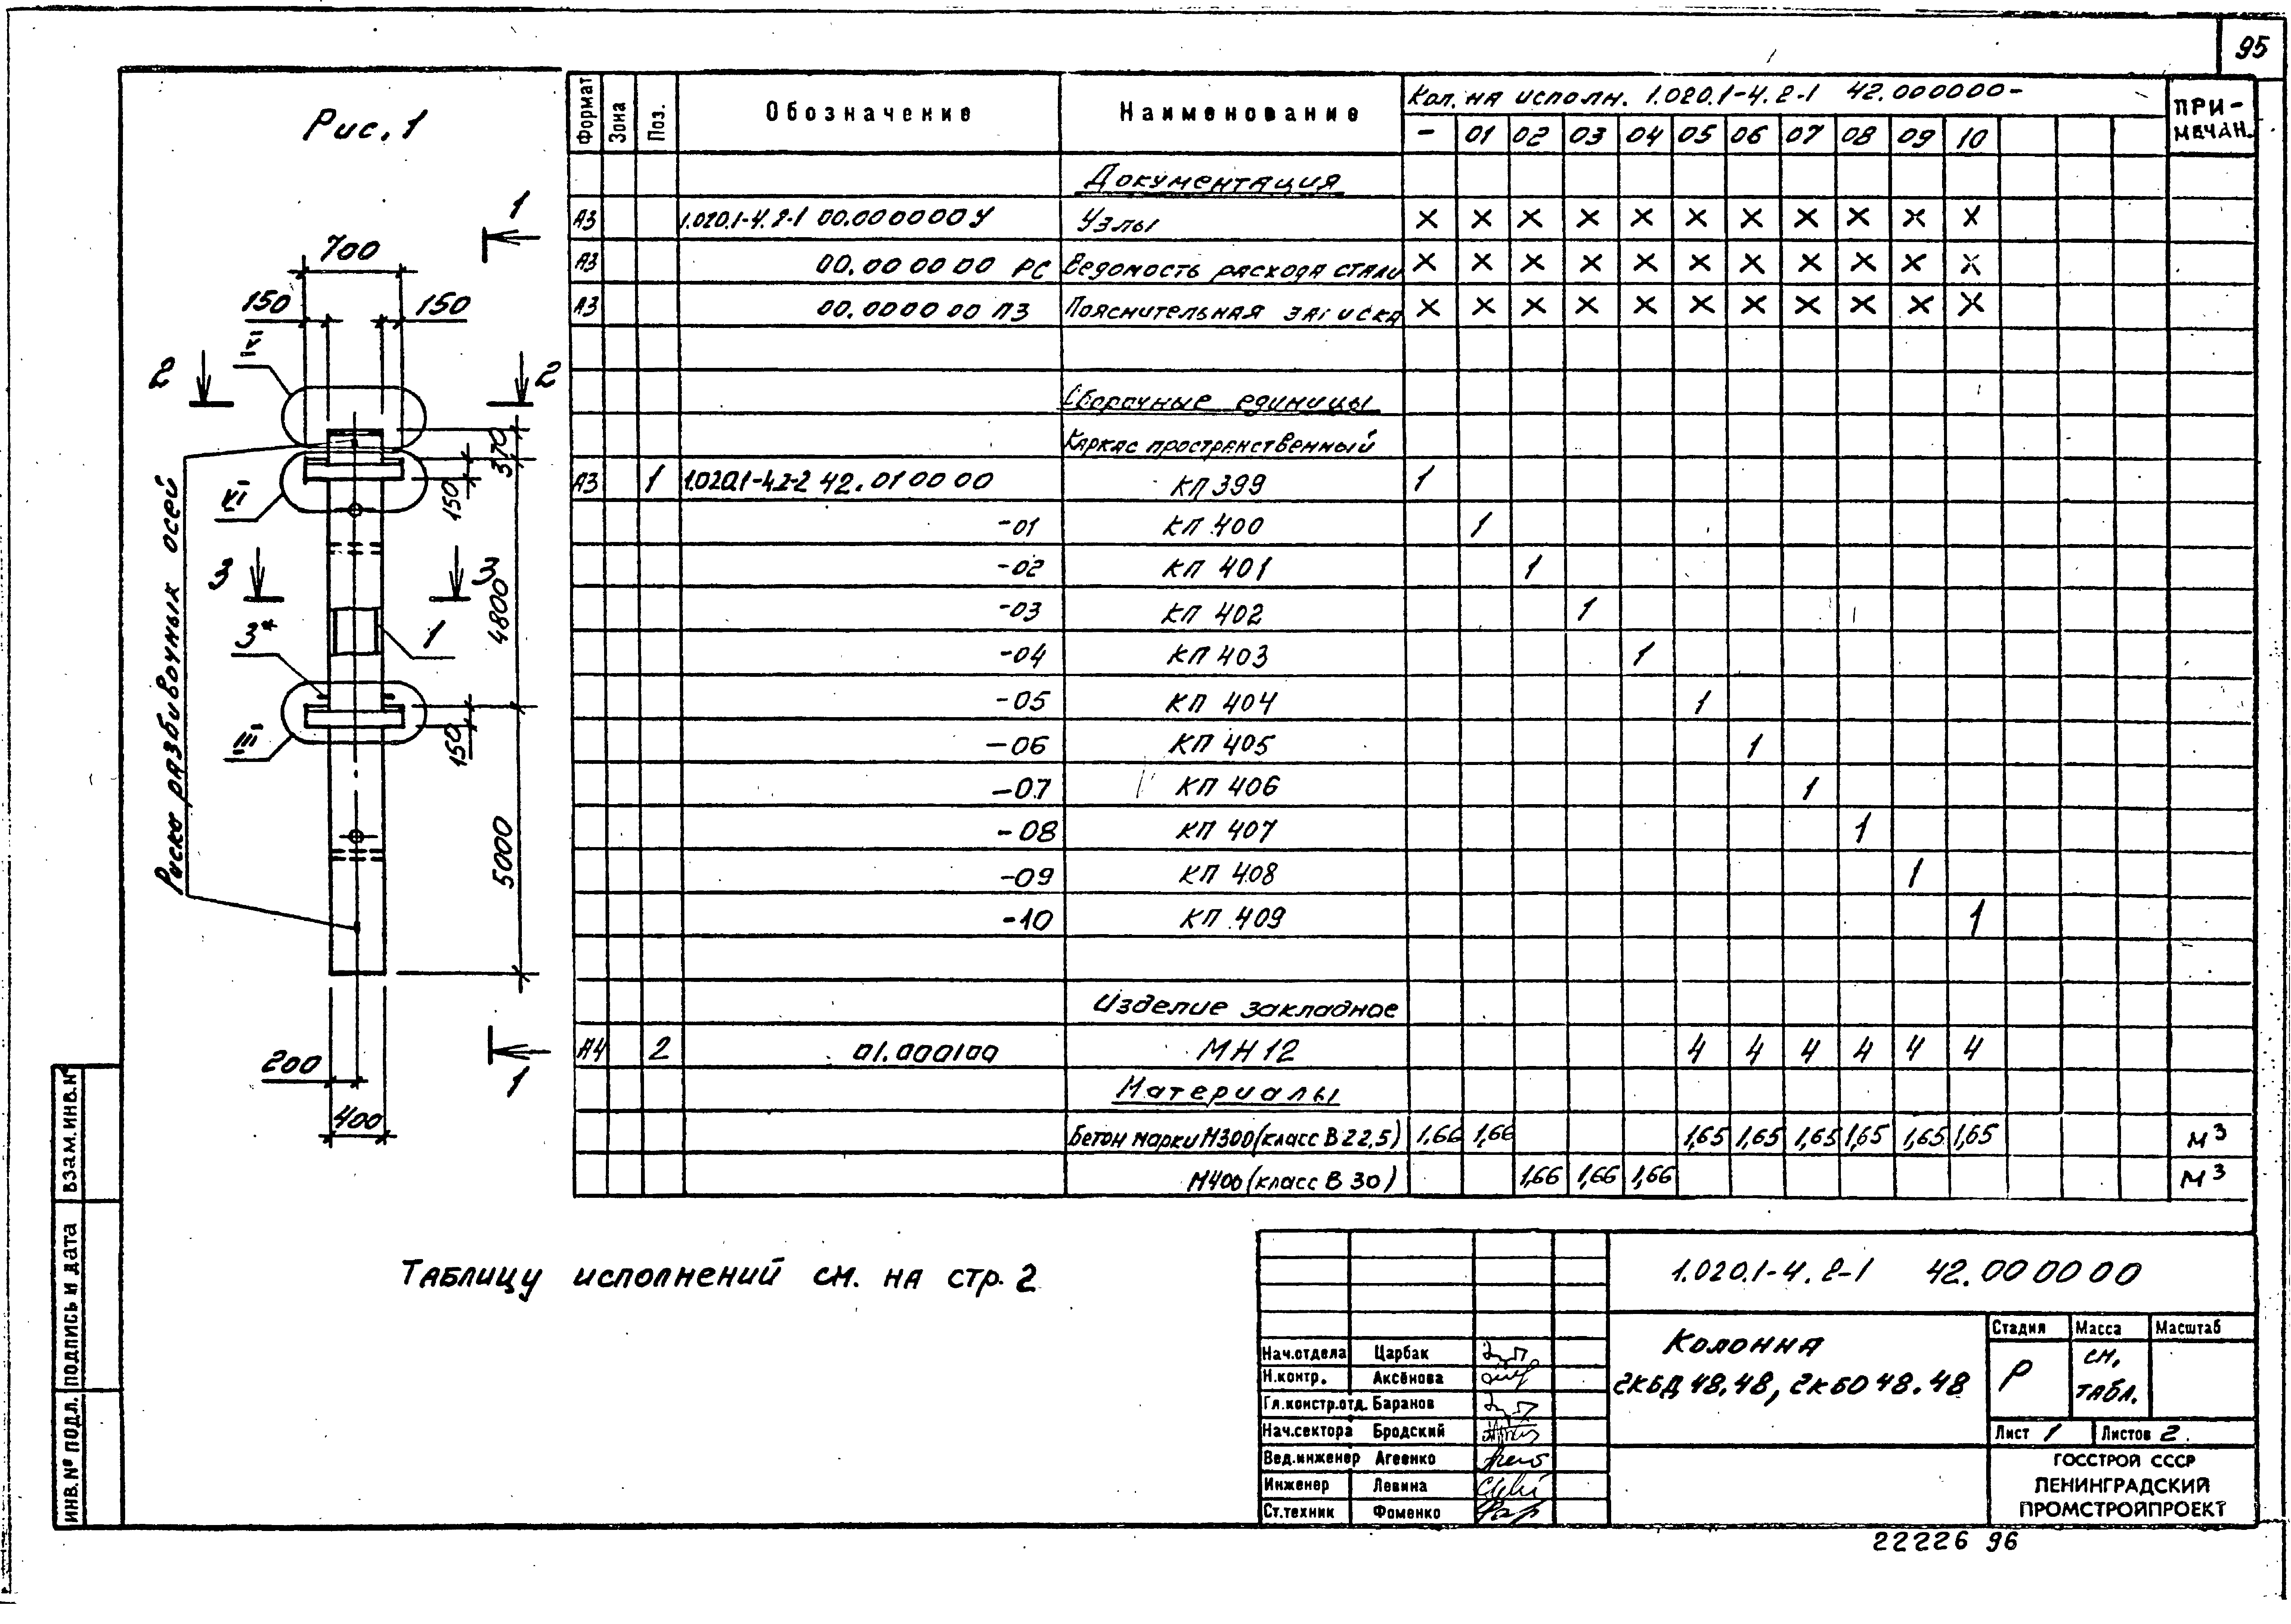 95
Рис. 1
1
700
150 150
IVI
2 2
370
VI
150
3 3
4800
3* 1
III
150
5000
Риски разбивочных осей
200
1
400
Формат Зона Поз. Обозначение Наименование Кол. на исполн. 1.020.1-4.2-1 42.000000- ПРИ-МЕЧАН.
- 01 02 03 04 05 06 07 08 09 10
Документация
А3 1.020.1-4.2-1 00.000000У Узлы × × × × × × × × × × ×
А3 00.000000 РС Ведомость расхода стали × × × × × × × × × × ×
А3 00.000000 ПЗ Пояснительная записка × × × × × × × × × × ×
Сборочные единицы
Каркас пространственный
А3 1 1.020.1-4.2-2 42.010000 КП 399 1
-01 КП 400 1
-02 КП 401 1
-03 КП 402 1
-04 КП 403 1
-05 КП 404 1
-06 КП 405 1
-07 КП 406 1
-08 КП 407 1
-09 КП 408 1
-10 КП 409 1
Изделие закладное
А4 2 01.000100 МН 12 4 4 4 4 4 4
Материалы
Бетон марки М300 (класс В 22,5) 1,66 1,66 1,65 1,65 1,65 1,65 1,65 1,65 м3
М400 (класс В 30) 1,66 1,66 1,66 м3
Таблицу исполнений см. на стр. 2
1.020.1-4.2-1 42.000000
Колонна
2КБД 48.48, 2КБО 48.48
Стадия Масса Масштаб
Р см. табл.
Лист 1 Листов 2
Нач.отдела Царбак
Н.контр. Аксёнова
Гл.констр.отд. Баранов
Нач.сектора Бродский
Вед.инженер Агеенко
Инженер Левина
Ст.техник Фоменко
ГОССТРОЙ СССР
ЛЕНИНГРАДСКИЙ
ПРОМСТРОЙПРОЕКТ
ИНВ.№ ПОДЛ. ПОДПИСЬ И ДАТА ВЗАМ.ИНВ.№
22226 96